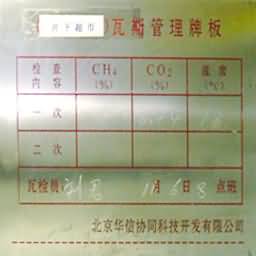 井下超市
瓦斯管理牌板
检查内容 CH₄(%) CO₂(%) 温度(℃)
一次
二次
瓦检员 11月6日8点班
北京华信协同科技开发有限公司